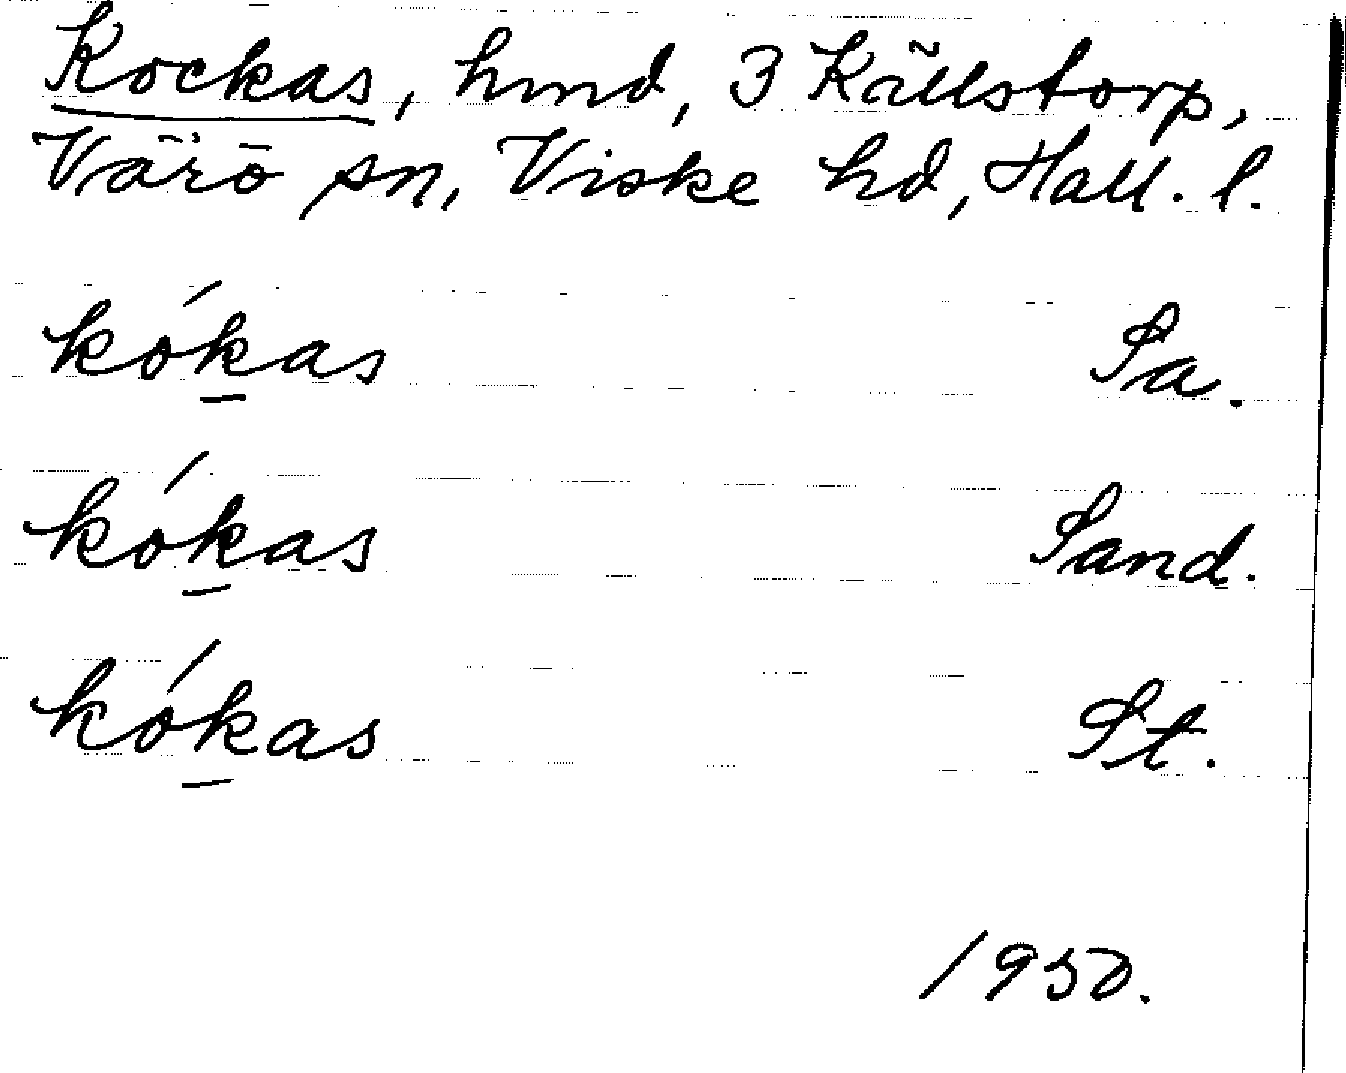 Kockas, hmd, 3 Källstorp,
Värö sn, Viske hd, Hall. l.
kók̲as Sa.
kók̲as Sand.
kók̲as St.
1950.